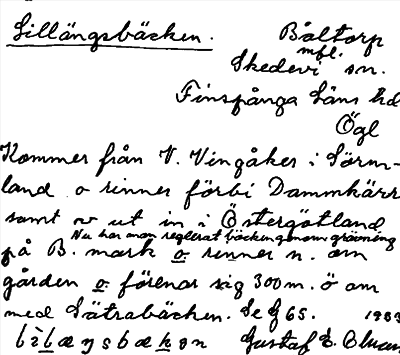 Lillängsbäcken.
Båltorp
mfl.
Skedevi sn.
Finspånga Läns hd
Ögl
Kommer från V. Vingåker i Sörm-
land o rinner förbi Dammkärr
samt v ut in i Östergötland
Nu har man reglerat bäcken genom grävning
på B. mark o rinner n. om
gården o förenar sig 300 m. ö om
med Sätrabäcken. Se G 65. 1933
Gustaf E.